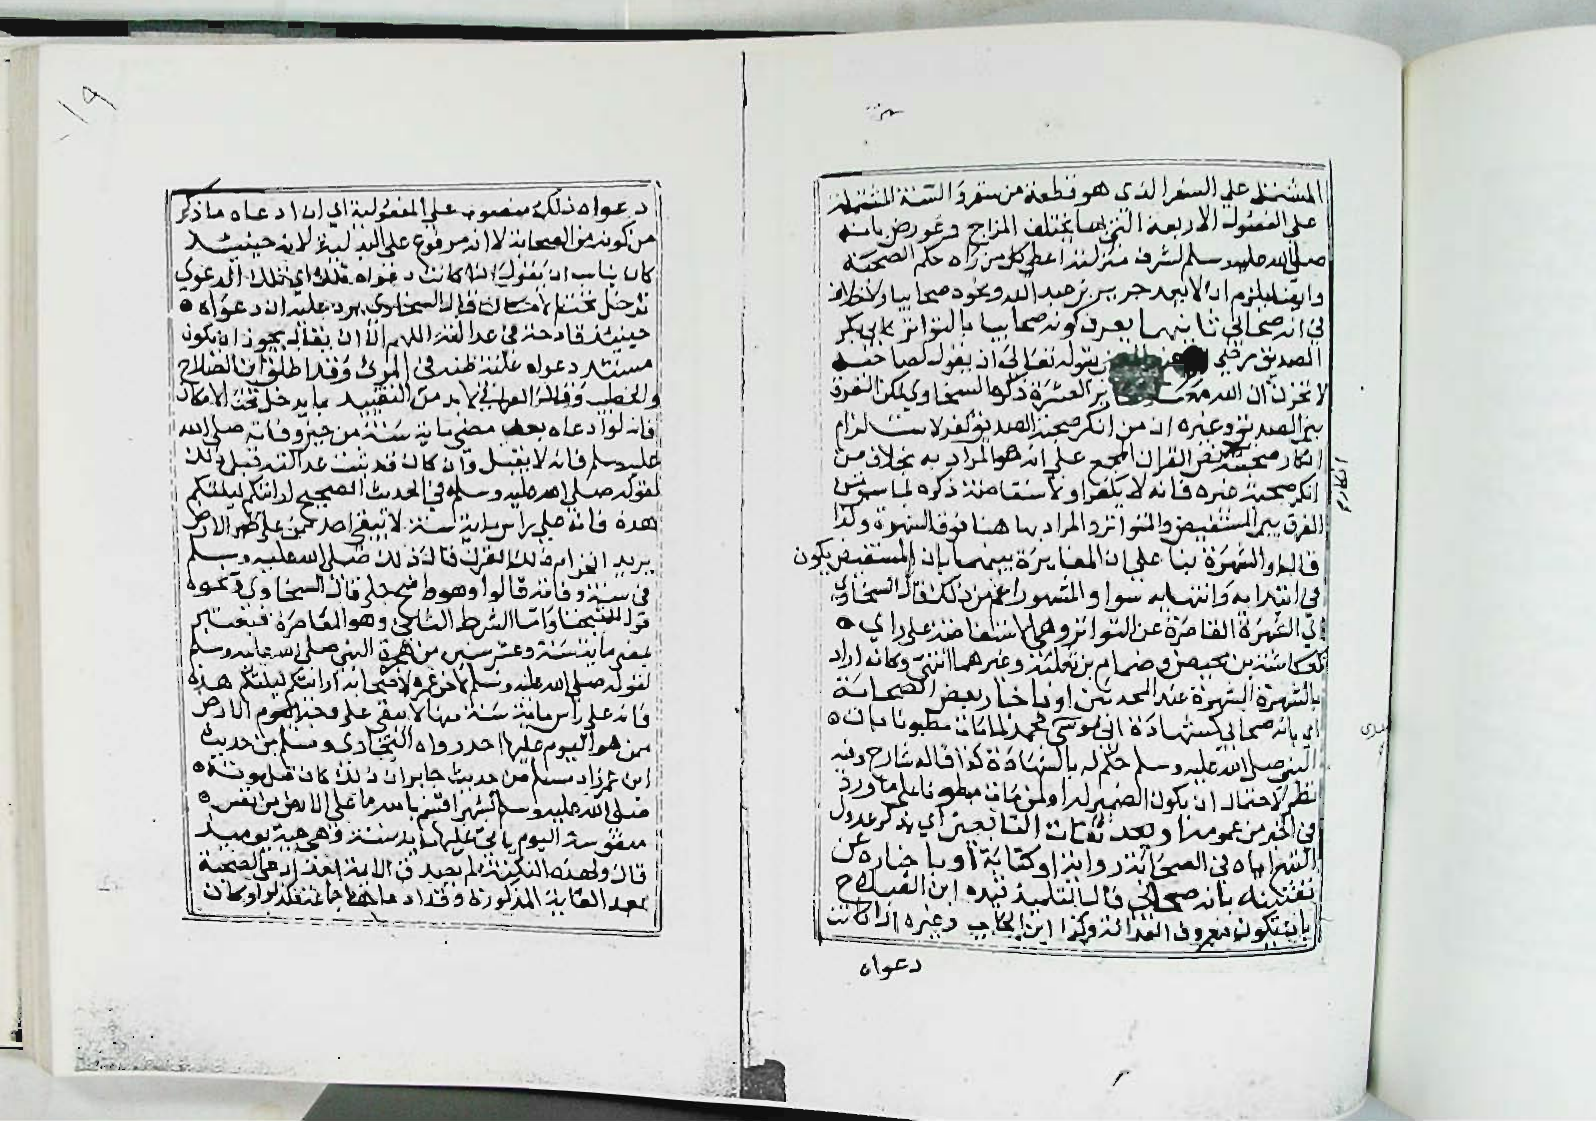 المشتمل على السفر الذي هو قطعة من سقر والسنة المشتملة
على الفصول الاربعة التي بها يختلف المزاج وعورض بانه
صلى الله عليه وسلم لشرف منزلته اعطي كل من رآه حكم الصحبة
وايضا يلزم ان لا يعد جرير بن عبد الله ونحوه صحابيا ولا خلاف
في انه صحابي ثانيهما يعرف كونه صحابيا بالتواتر كابي بكر
الصديق رضي بقوله تعالى اذ يقول لصاحبه
لا تحزن ان الله معنا العشرة ذكره السخاوي لكن الفرق
بين الصديق وغيره ان من انكر صحبة الصديق كفر لاستلزام
انكار صحبته نص القران المجمع على انه هو المراد به بخلاف من
انكر صحبة غيره فانه لا يكفر او لاستفاضة ذكره لما سبق من
الفرق بين المستفيض والمتواتر والمراد بها هنا فوق الشهرة ولذا
قال او الشهرة بنا على ان المغايرة بينهما بان المستفيض يكون
في ابتدايه وانتهايه سوا والمشهور اعم من ذلك قال السخاوي
اي الشهرة القاصرة عن التواتر وهي الاستفاضة على راي
كعكاشة بن محيصن وضمام بن ثعلبة وغيرهما انتهى وكانه اراد
بالشهرة الشهرة عند المحدثين او باخبار بعض الصحابة
اي بانه صحابي كشهادة ابي موسى لحممة لما مات مطبونا بان
النبي صلى الله عليه وسلم حكم له بالشهادة كذا قاله شارح وفيه
نظر لاحتمال ان يكون الضمير لمن مات مطبونا على ما ورد
في الخبر من عمومه او بعض ثقات التابعين اي بذكر عدول
اياه في الصحابة رواية او كتابة او باخباره عن
نفسه بانه صحابي قال التلميذ قيده ابن الصلاح
بان يكون معروف العدالة وكذا ابن الحاجب وغيره اذا كانت
دعواه
انكاره
دعواه ذلك منصوب على المفعولية اي ان ادعاه ما ذكر
من كونه من الصحابة لا انه مرفوع على البدلية لانه حينيذ
كان يناسب ان يقول اذا كانت دعواه تلك اي تلك الدعوى
تدخل تحت الامكان قال السخاوي يرد عليه ان دعواه
حينيذ قادحة في عدالته اللهم الا ان يقال يجوز ان يكون
مستند دعواه غلبة ظنه في المرئي وقد اطلق ابن الصلاح
والخطيب وقال العراقي لا بد من التقييد بما يدخل تحت الامكان
فانه لو ادعاه بعد مضي ماية سنة من حين وفاته صلى الله
عليه وسلم فانه لا يقبل وان كان قد ثبتت عدالته قبل ذلك
لقوله صلى الله عليه وسلم في الحديث الصحيح ارايتكم ليلتكم
هذه فانه على راس ماية سنة لا يبقى احد ممن على ظهر الارض
يريد انخرام ذلك القرن قال ذلك صلى الله عليه وسلم
في سنة وفاته قالوا وهو واضح جلي قال السخاوي ونحوه
قول شيخنا واما الشرط الثاني وهو المعاصرة فيعتبر
بمضي ماية سنة وعشر سنين من هجرة النبي صلى الله عليه وسلم
لقوله صلى الله عليه وسلم اخر عمره لاصحابه ارايتكم ليلتكم هذه
فانه على راس ماية سنة منها لا يبقى على وجه الارض
ممن هو اليوم عليها احد رواه البخاري ومسلم من حديث
ابن عمر زاد مسلم من حديث جابر ان ذلك كان قبل موته
صلى الله عليه وسلم بشهر اقسم بالله ما على الارض من نفس
منفوسة اليوم ياتي عليها ماية سنة وهي حية يوميذ
قال ولهذه النكتة لم يصدق الايمة احدا ادعى الصحبة
بعد الغاية المذكورة وقد ادعاها جماعة فكذبوا وكان